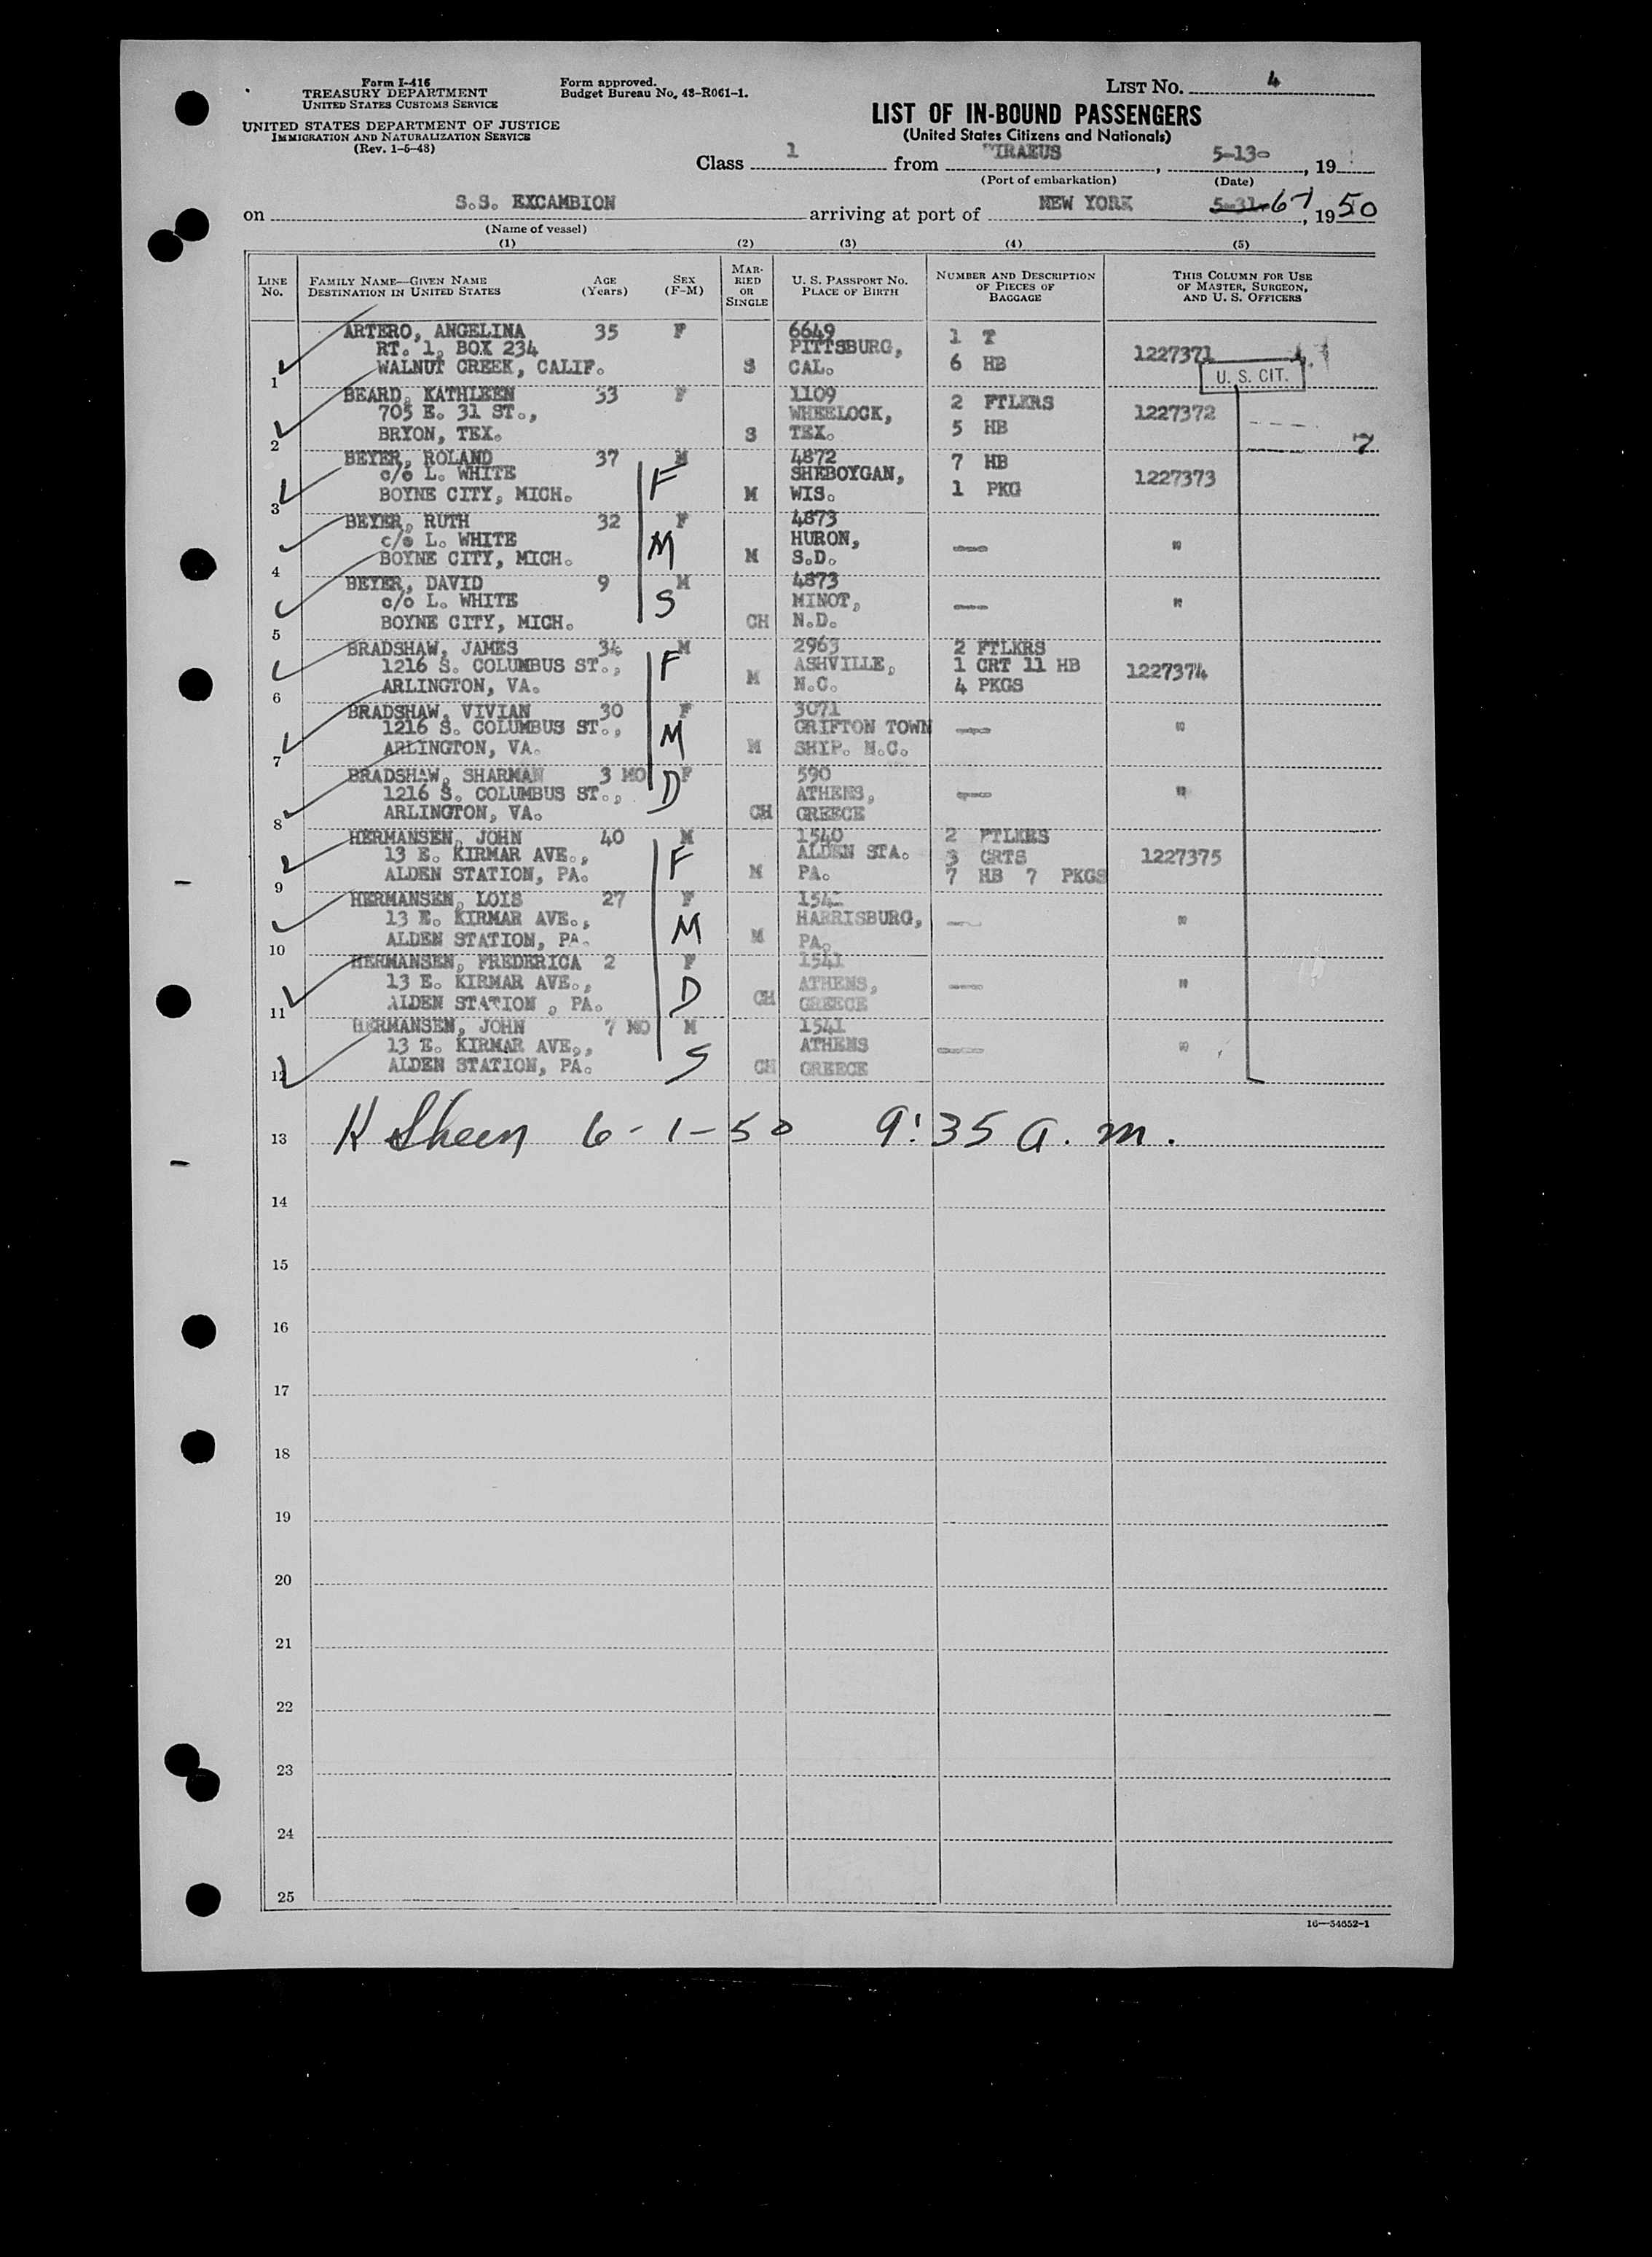 Form I-416
TREASURY DEPARTMENT
UNITED STATES CUSTOMS SERVICE
UNITED STATES DEPARTMENT OF JUSTICE
IMMIGRATION AND NATURALIZATION SERVICE
(Rev. 1-5-48)
Form approved.
Budget Bureau No. 43-R061-1.
LIST NO. 4
LIST OF IN-BOUND PASSENGERS
(United States Citizens and Nationals)
Class 1 from PIRAEUS, 5-13-, 19
(Port of embarkation) (Date)
on S.S. EXCAMBION arriving at port of NEW YORK 5-31- 6-1, 1950
(Name of vessel)
(1) (2) (3) (4) (5)
LINE NO. FAMILY NAME—GIVEN NAME DESTINATION IN UNITED STATES AGE (Years) SEX (F-M) MARRIED OR SINGLE U. S. PASSPORT NO. PLACE OF BIRTH NUMBER AND DESCRIPTION OF PIECES OF BAGGAGE THIS COLUMN FOR USE OF MASTER, SURGEON, AND U. S. OFFICERS
ARTERO, ANGELINA 35 F 6649 1 T
RT. 1, BOX 234 PITTSBURG, 1227371
1 WALNUT CREEK, CALIF. S CAL. 6 HB
U. S. CIT.
BEARD, KATHLEEN 33 F 1109 2 FTLKRS
705 E. 31 ST., WHEELOCK, 1227372
2 BRYON, TEX. S TEX. 5 HB
7
BEYER, ROLAND 37 M 4872 7 HB
c/o L. WHITE F SHEBOYGAN, 1227373
3 BOYNE CITY, MICH. M WIS. 1 PKG
BEYER, RUTH 32 F 4873
c/o L. WHITE M HURON, — "
4 BOYNE CITY, MICH. M S.D.
BEYER, DAVID 9 M 4873
c/o L. WHITE S MINOT, — "
5 BOYNE CITY, MICH. CH N.D.
BRADSHAW, JAMES 34 M 2963 2 FTLKRS
1216 S. COLUMBUS ST., F ASHVILLE, 1 CRT 11 HB 1227374
6 ARLINGTON, VA. M N.C. 4 PKGS
BRADSHAW, VIVIAN 30 F 3071
1216 S. COLUMBUS ST., M GRIFTON TOWN — "
7 ARLINGTON, VA. M SHIP. N.C.
BRADSHAW, SHARMAN 3 MO F 590
1216 S. COLUMBUS ST., D ATHENS, — "
8 ARLINGTON, VA. CH GREECE
HERMANSEN, JOHN 40 M 1540 2 FTLKRS
13 E. KIRMAR AVE., F ALDEN STA. 3 CRTS 1227375
9 ALDEN STATION, PA. M PA. 7 HB 7 PKGS
HERMANSEN, LOIS 27 F 1541
13 E. KIRMAR AVE., M HARRISBURG, — "
10 ALDEN STATION, PA. M PA.
HERMANSEN, FREDERICA 2 F 1541
13 E. KIRMAR AVE., D ATHENS, — "
11 ALDEN STATION, PA. CH GREECE
HERMANSEN, JOHN 7 MO M 1541
13 E. KIRMAR AVE., S ATHENS — "
12 ALDEN STATION, PA. CH GREECE
13 H Sheen 6-1-50 9:35 a.m.
14
15
16
17
18
19
20
21
22
23
24
25
16—54652-1